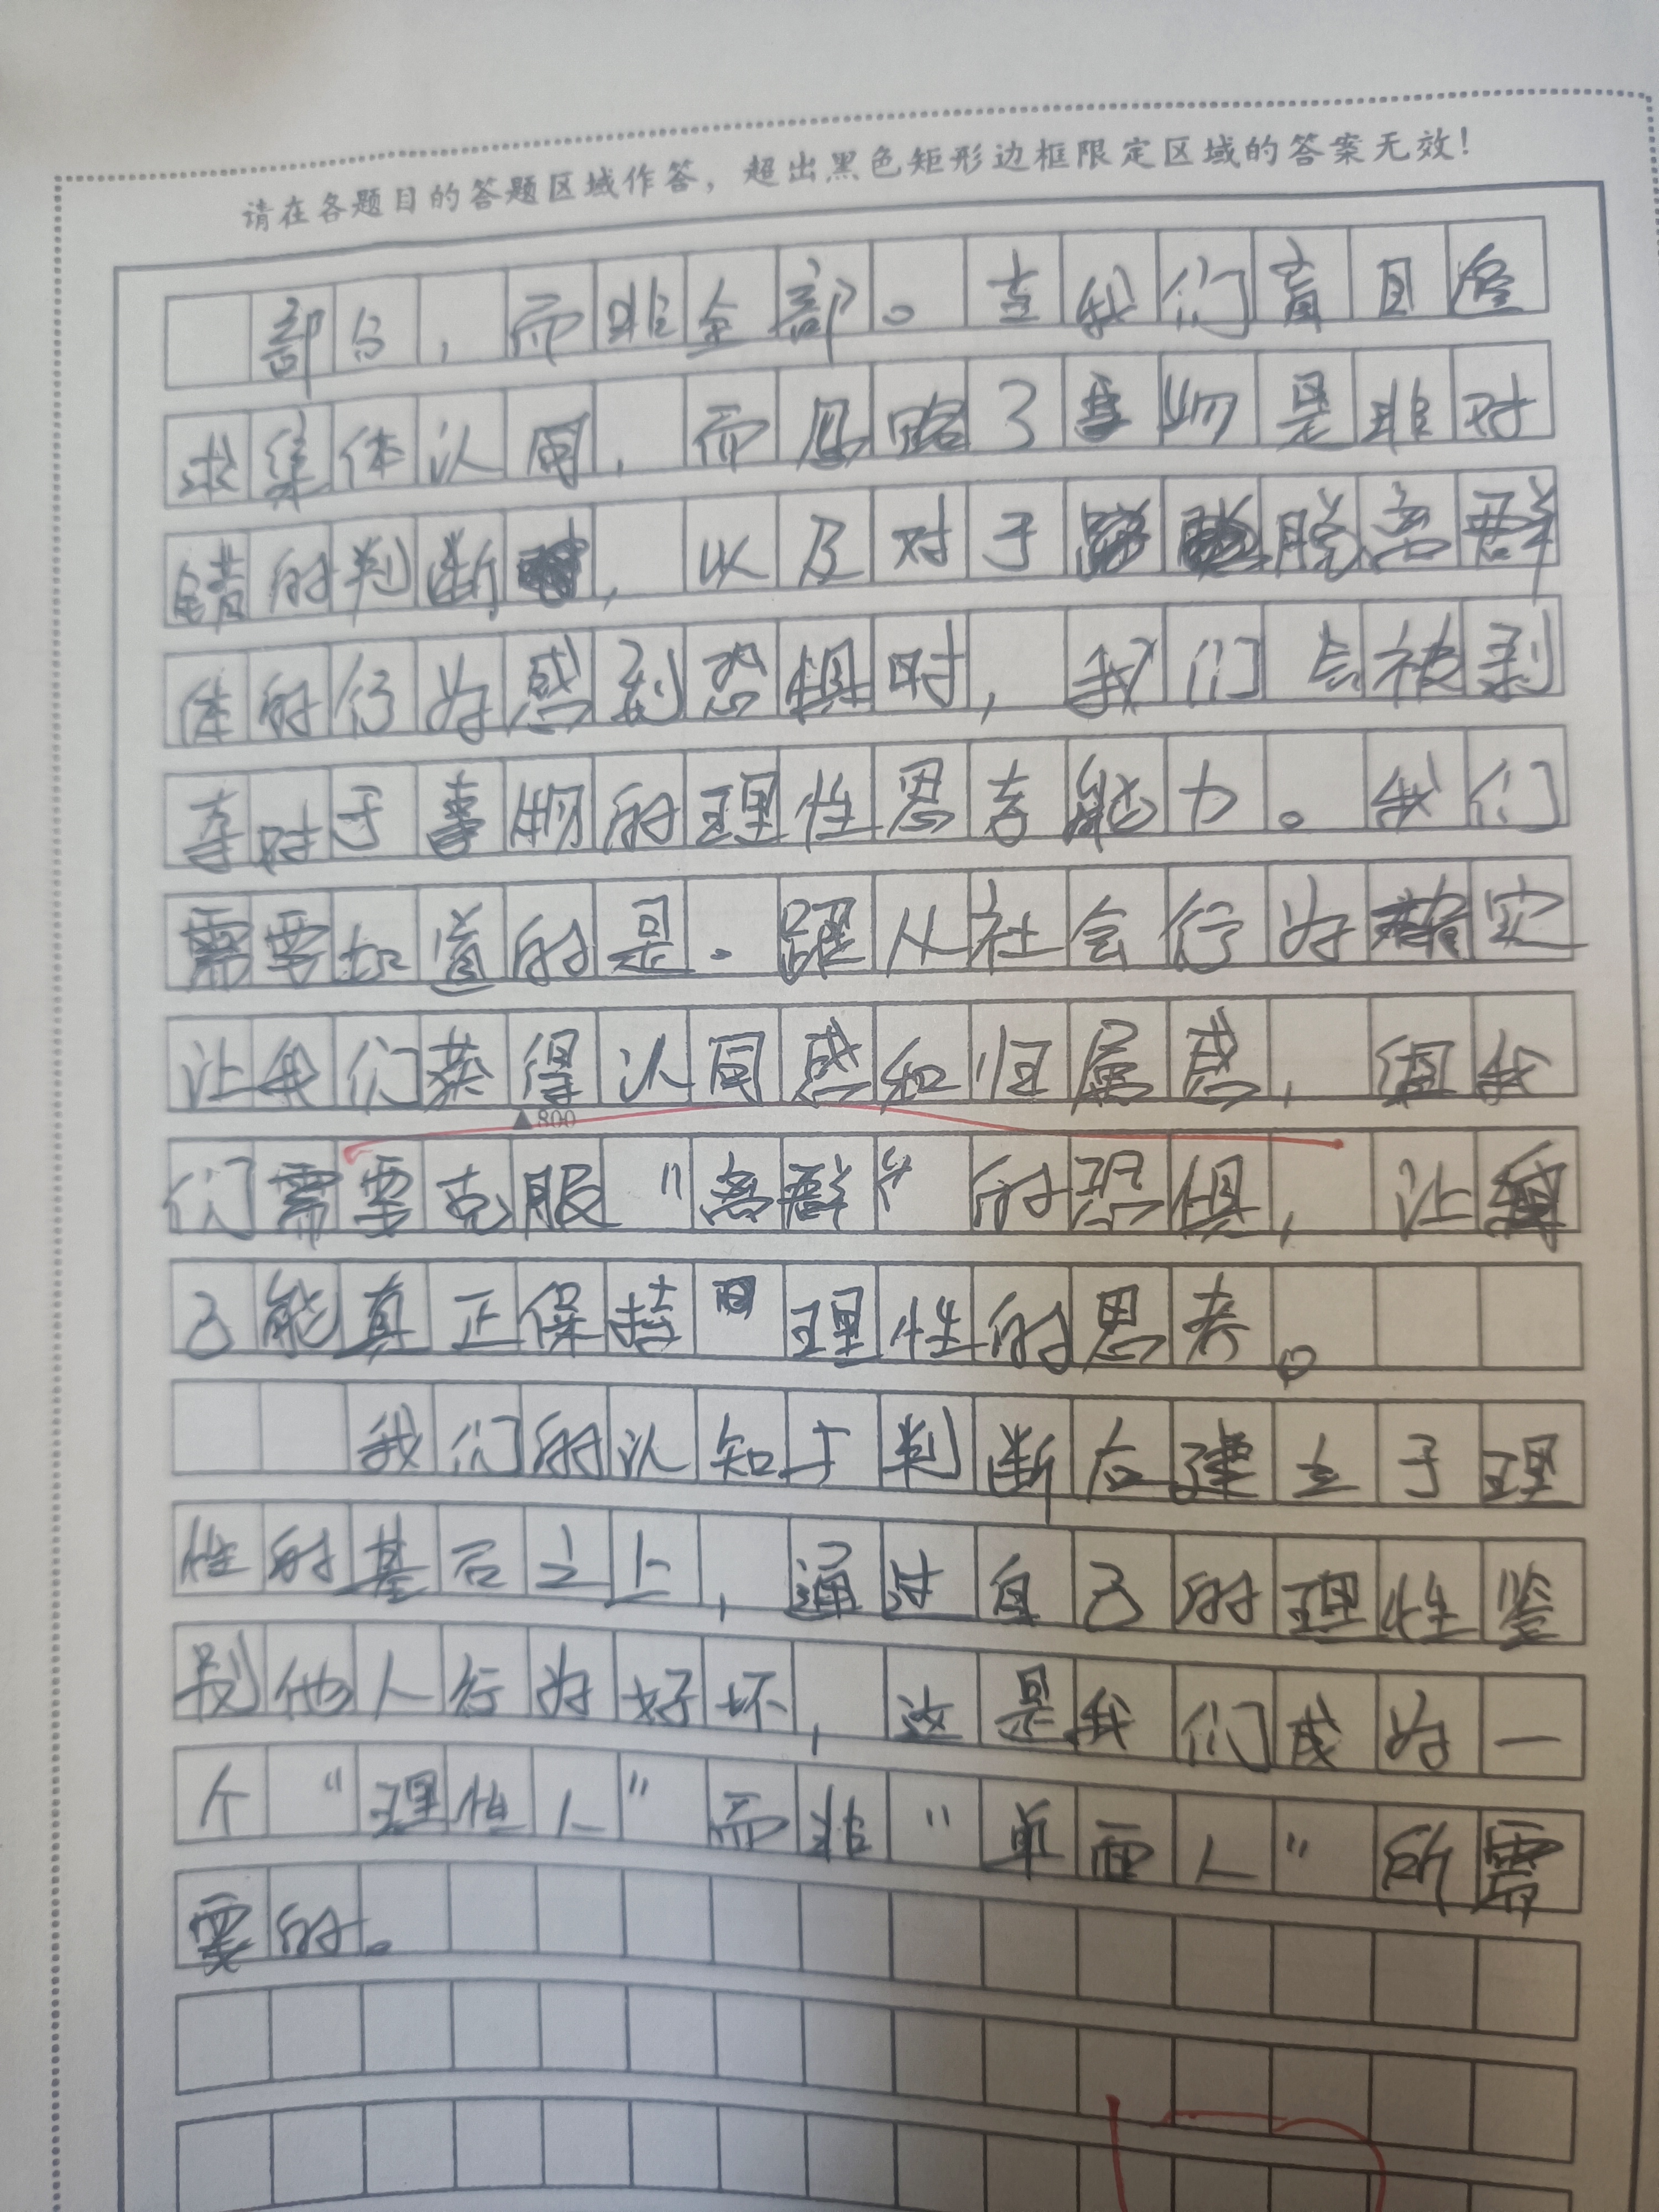 请在各题目的答题区域作答，超出黑色矩形边框限定区域的答案无效！
部分，而非全部。当我们盲目追
求集体认同，而忽略了事物是非对
错的判断，以及对于脱离群
体的行为感到恐惧时，我们会被剥
夺对于事物的理性思考能力。我们
需要知道的是。跟从社会行为确实
让我们获得认同感和归属感，但我
▲800
们需要克服“离群”的恐惧，让
己能真正保持理性的思考。
我们的认知与判断应建立于理
性的基石之上，通过自己的理性鉴
别他人行为好坏，这是我们成为一
个“理性人”而非“单面人”所需
要的。